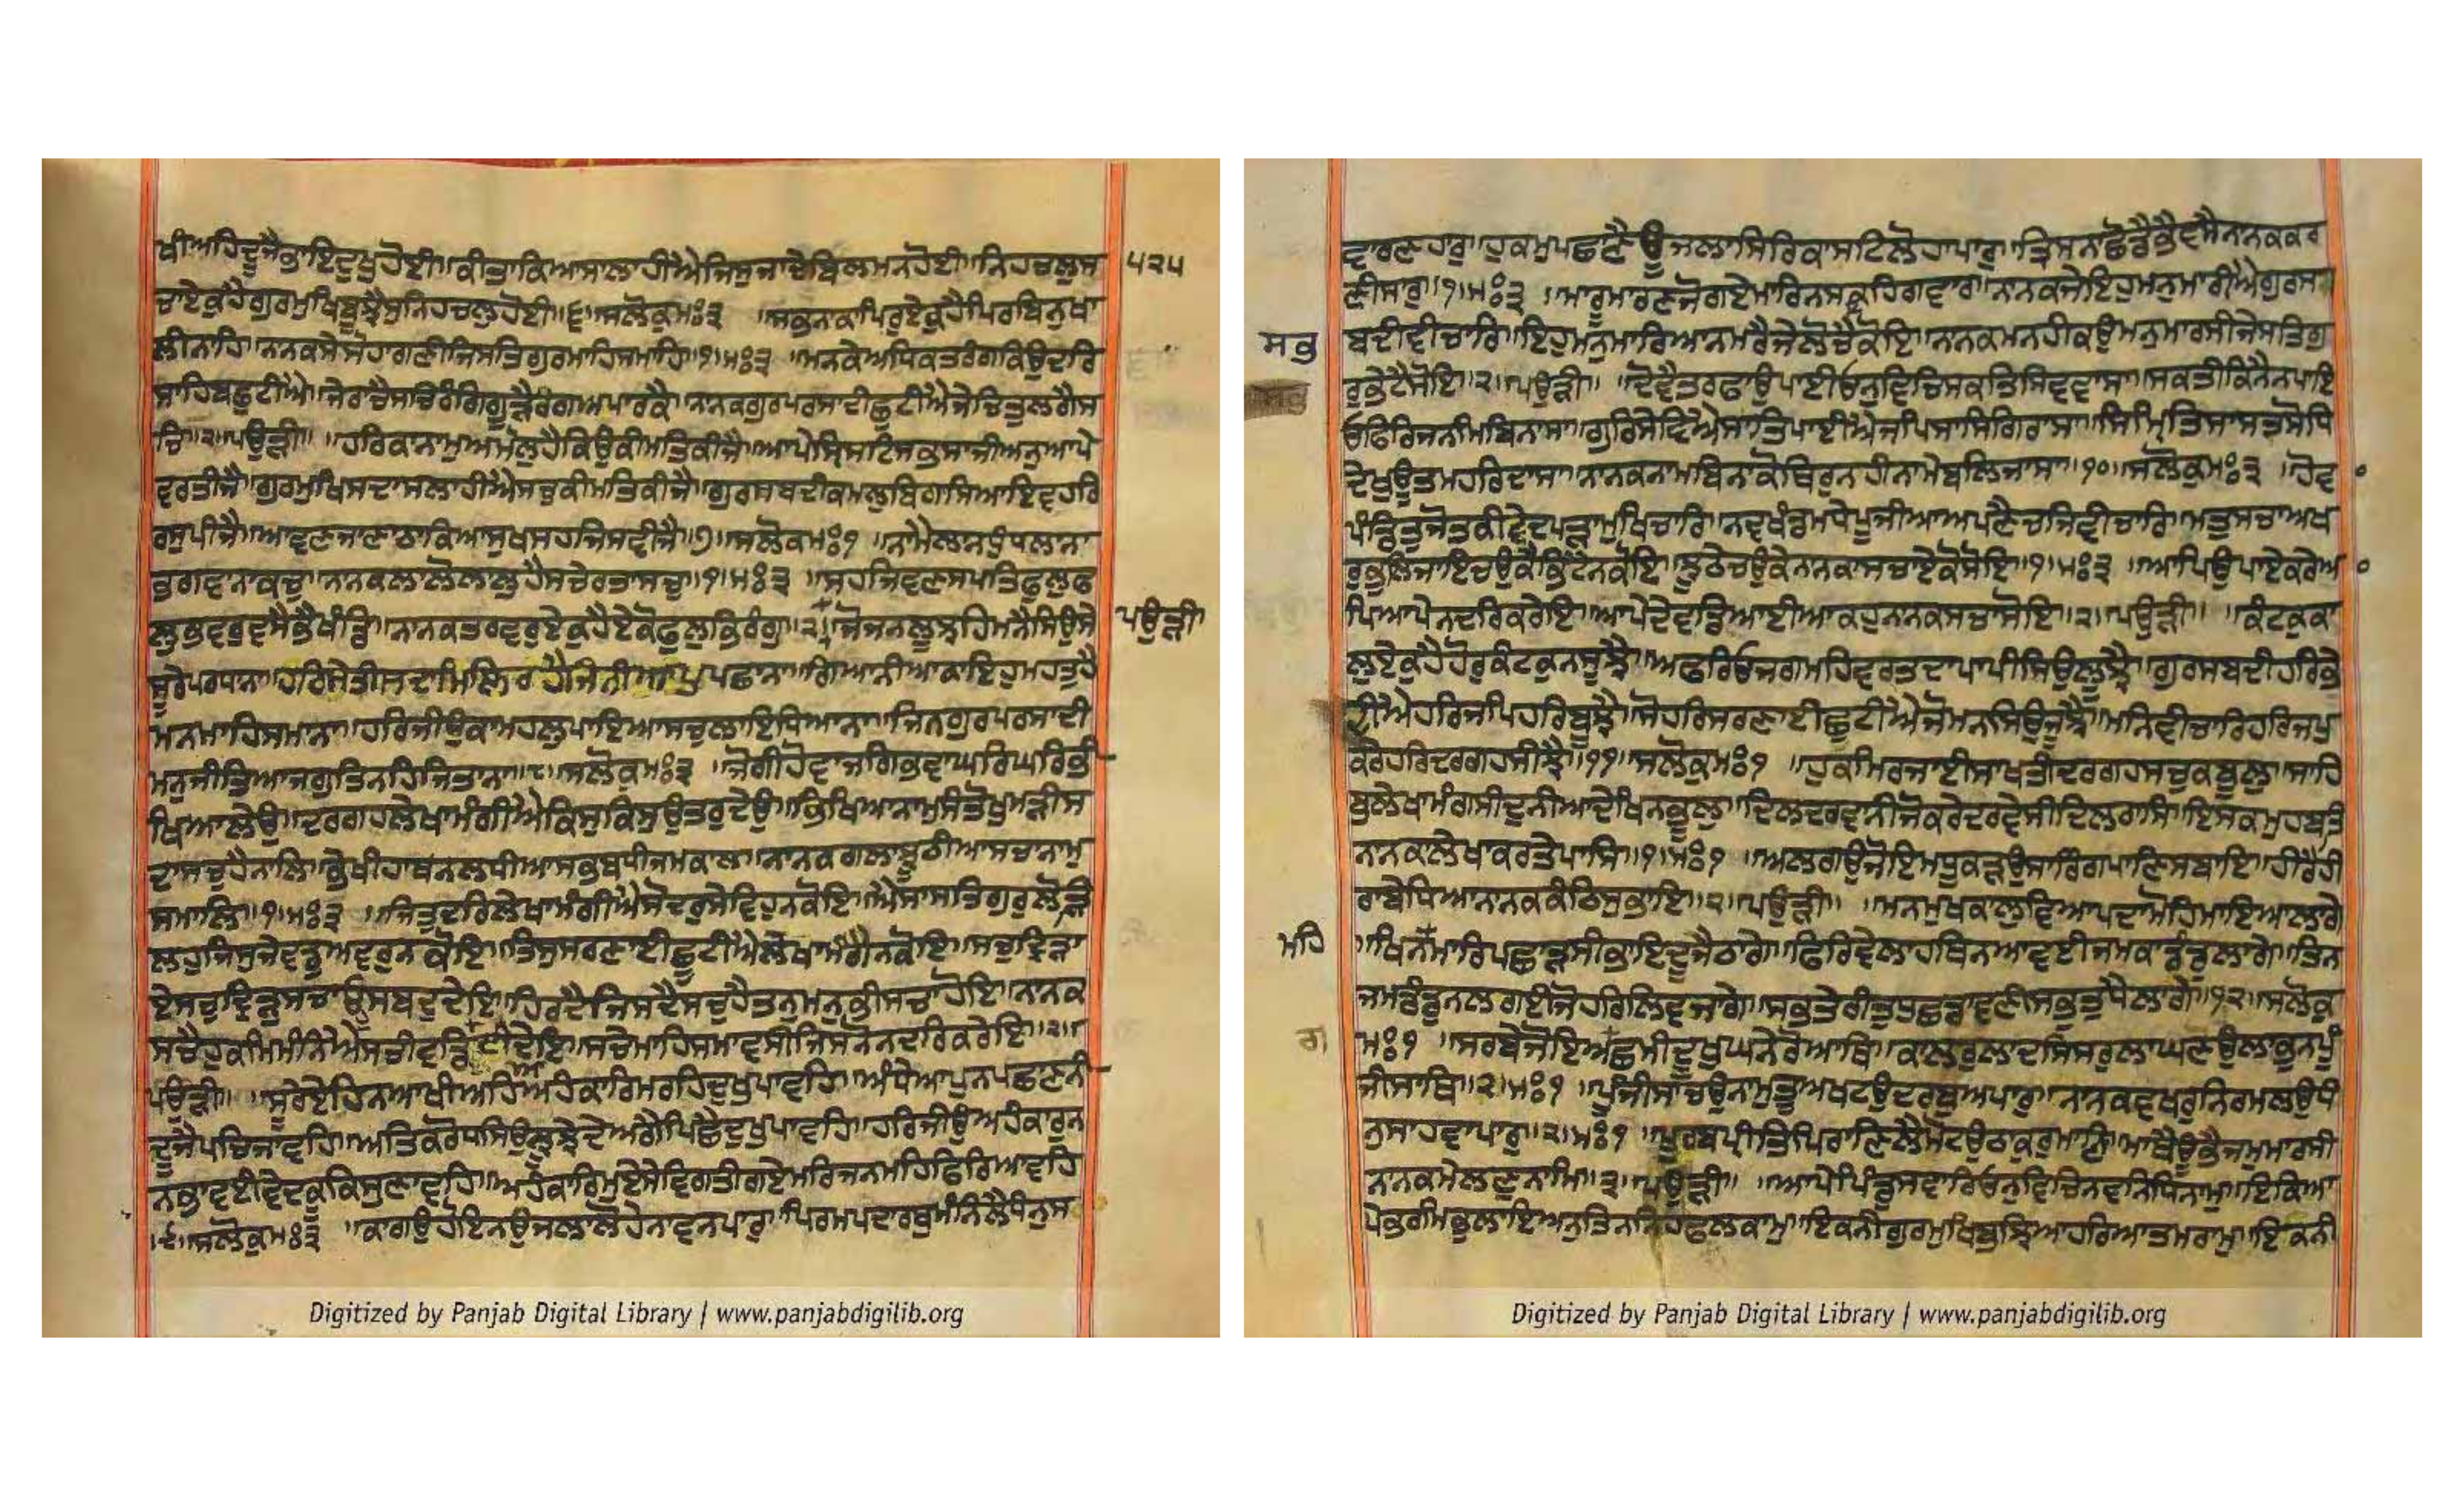 ਖੀਅਹਿਦੂਜੈਭਾਇਦੁਖੁਹੋਈ॥ਕੀਤਾਕਿਆਸਾਲਾਹੀਐਜਿਸੁਜਾਦੇਬਿਲਮਨਹੋਈ॥ਨਿਹਚਲੁਸ ੫੨੫
ਚਾਏਕੁਹੈਗੁਰਮੁਖਿਬੂਝੈਸੁਨਿਹਚਲੁਹੋਈ॥੬॥ਸਲੋਕੁਮਃ੩ ॥ਸਭਨਾਕਾਪਿਰੁਏਕੁਹੈਪਿਰਬਿਨੁਖਾ
ਲੀਨਾਹਿ॥ਨਾਨਕਸੇਸੋਹਾਗਣੀਜਿਸਤਿਗੁਰਮਾਹਿਸਮਾਹਿ॥੧॥ਮਃ੩ ॥ਮਨਕੇਅਧਿਕਤਰੰਗਕਿਉਦਰਿ
ਸਾਹਿਬਛੁਟੀਐ॥ਜੇਰਾਚੈਸਚਿਰੰਗਿਗੂੜੈਰੰਗਅਪਾਰਕੈ॥ਨਾਨਕਗੁਰਪਰਸਾਦੀਛੁਟੀਐਜੇਚਿਤੁਲਗੈਸ
ਚਿ॥੨॥ਪਉੜੀ॥ ॥ਹਰਿਕਾਨਾਮੁਅਮੋਲੁਹੈਕਿਉਕੀਮਤਿਕੀਜੈ॥ਆਪੇਸ੍ਰਿਸਟਿਸਭਸਾਜੀਅਨੁਆਪੇ
ਵਰਤੀਜੈ॥ਗੁਰਮੁਖਿਸਦਾਸਲਾਹੀਐਸਚੁਕੀਮਤਿਕੀਜੈ॥ਗੁਰਸਬਦੀਕਮਲੁਬਿਗਾਸਿਆਇਵਹਰਿ
ਰਸੁਪੀਜੈ॥ਆਵਣਜਾਣਾਠਾਕਿਆਸੁਖਸਹਜਿਸਵੀਜੈ॥੭॥ਸਲੋਕਮਃ੧ ॥ਨਾਮੈਲਾਨਧੁੰਧਲਾਨਾ
ਭਗਵਾਨਾਕਚੁ॥ਨਾਨਕਲਾਲੋਲਾਲੁਹੈਸਚੇਰਤਾਸਚੁ॥੧॥ਮਃ੩ ॥ਸਹਜਿਵਣਸਪਤਿਫੁਲੁਫ
ਲੁਭਵਰੁਵਸੈਭੈਖੰਡਿ॥ਨਾਨਕਤਰਵਰੁਏਕੁਹੈਏਕੋਫੁਲੁਭਿਰੰਗੁ॥੨॥ਜੋਜਨਲੂਝਹਿਮਨੈਸਿਉਸੇ ਪਉੜੀ
ਸੂਰੇਪਰਧਾਨਾ॥ਹਰਿਸੇਤੀਸਦਾਮਿਲਿਰਹੇਜਿਨੀਆਪੁਪਛਾਨਾ॥ਗਿਆਨੀਆਕਾਇਹੁਮਹਤੁਹੈ
ਮਨਮਾਹਿਸਮਾਨਾ॥ਹਰਿਜੀਉਕਾਮਹਲੁਪਾਇਆਸਚੁਲਾਇਧਿਆਨਾ॥ਜਿਨਗੁਰਪਰਸਾਦੀ
ਮਨੁਜੀਤਿਆਜਗੁਤਿਨਹਿਜਿਤਾਨਾ॥੮॥ਸਲੋਕੁਮਃ੩ ॥ਜੋਗੀਹੋਵਾਜਗਿਭਵਾਘਰਿਘਰਿਭੀ
ਖਿਆਲੇਉ॥ਦਰਗਹਲੇਖਾਮੰਗੀਐਕਿਸੁਕਿਸੁਉਤਰੁਦੇਉ॥ਭਿਖਿਆਨਾਮੁਸੰਤੋਖੁਮੜੀਸ
ਦਾਸਚੁਹੈਨਾਲਿ॥ਭੇਖੀਹਾਥਨਲਧੀਆਸਭਬਧੀਜਮਕਾਲ॥ਨਾਨਕਗਲਾਝੂਠੀਆਸਚਾਨਾਮੁ
ਸਮਾਲਿ॥੧॥ਮਃ੩ ॥ਜਿਤੁਦਰਿਲੇਖਾਮੰਗੀਐਸੋਦਰੁਸੇਵਿਹੁਨਕੋਇ॥ਐਸਾਸਤਿਗੁਰੁਲੋੜਿ
ਲਹੁਜਿਸੁਜੇਵਡੁਅਵਰੁਨਕੋਇ॥ਤਿਸੁਸਰਣਾਈਛੂਟੀਐਲੇਖਾਮੰਗੈਨਕੋਇ॥ਸਚੁਦ੍ਰਿੜਾ
ਏਸਚੁਦ੍ਰਿੜੁਸਚਾਓਸਬਦੁਦੇਇ॥ਹਿਰਦੈਜਿਸਦੈਸਚੁਹੈਤਨੁਮਨੁਭੀਸਚਾਹੋਇ॥ਨਾਨਕ
ਸਚੈਹੁਕਮਿਮੰਨਿਐਸਚੀਵਡਿਆਈਦੇਇ॥ਸਚੇਮਾਹਿਸਮਾਵਸੀਜਿਸਨੋਨਦਰਿਕਰੇਇ॥੨॥
ਪਉੜੀ॥ ॥ਸੂਰੇਏਹਿਨਆਖੀਅਹਿਅਹੰਕਾਰਿਮਰਹਿਦੁਖੁਪਾਵਹਿ॥ਅੰਧੇਆਪੁਨਪਛਾਣਨੀ
ਦੂਜੈਪਚਿਜਾਵਹਿ॥ਅਤਿਕਰੋਧਸਿਉਲੂਝਦੇਅਗੈਪਿਛੈਦੁਖੁਪਾਵਹਿ॥ਹਰਿਜੀਉਅਹੰਕਾਰੁਨ
ਨਭਾਵਈਵੇਦਕੂਕਿਸੁਣਾਵਹਿ॥ਅਹੰਕਾਰਿਮੁਏਸੇਵਿਗਤੀਗਏਮਰਿਜਨਮਹਿਫਿਰਿਆਵਹਿ
॥੯॥ਸਲੋਕੁਮਃ੩ ॥ਕਾਗਉਹੋਇਨਊਜਲਾਲੋਹੇਨਾਵਨਪਾਰੁ॥ਪਿਰਮਪਦਾਰਥੁਮੰਨਿਲੈਧੰਨੁਸ
ਵਾਰਣਹਾਰੁ॥ਹੁਕਮੁਪਛਾਣੈਊਜਲਾਸਿਰਿਕਾਸਟਲੋਹਾਪਾਰੁ॥ਤ੍ਰਿਸਨਾਛੋਡੈਭੈਵਸੈਨਾਨਕਕਰ
ਣੀਸਾਰੁ॥੧॥ਮਃ੩ ॥ਮਾਰੂਮਾਰਣਜੋਗਏਮਾਰਿਨਸਕਹਿਗਵਾਰ॥ਨਾਨਕਜੇਇਹੁਮਨੁਮਾਰੀਐਗੁਰਸ
ਬਦੀਵੀਚਾਰਿ॥ਇਹੁਮਨੁਮਾਰਿਆਨਮਰੈਜੇਲੋਚੈਕੋਇ॥ਨਾਨਕਮਨਹੀਕਉਮਨੁਮਾਰਸੀਜੇਸਤਿਗੁ
ਸਭੁ
ਰੁਭੇਟੈਸੋਇ॥੨॥ਪਉੜੀ॥ ॥ਦੋਵੈਤਰਫਾਉਪਾਈਓਨੁਵਿਚਿਸਕਤਿਸਿਵਵਾਸਾ॥ਸਕਤੀਕਿਨੈਨਪਾਇ
ਓਫਿਰਿਜਨਮਿਬਿਨਾਸਾ॥ਗੁਰਿਸੇਵਿਐਸਾਤਿਪਾਈਐਜਪਿਸਾਸਿਗਿਰਾਸਾ॥ਸਿਮ੍ਰਿਤਿਸਾਸਤਸੋਧਿ
ਦੇਖੁਊਤਮਹਰਿਦਾਸਾ॥ਨਾਨਕਨਾਮਬਿਨਾਕੋਥਿਰੁਨਹੀਨਾਮੇਬਲਿਜਾਸਾ॥੧੦॥ਸਲੋਕੁਮਃ੩ ॥ਹੋਵਾ
ਪੰਡਿਤੁਜੋਤਕੀਵੇਦਪੜਾਮੁਖਿਚਾਰਿ॥ਨਵਖੰਡਮਧੇਪੂਜੀਆਅਪਣੈਚਜਿਵੀਚਾਰਿ॥ਮਤੁਸਚਾਅਖ
ਰੁਭੁਲਿਜਾਇਚਉਕੈਭਿਟੈਨਕੋਇ॥ਝੂਠੇਚਉਕੇਨਾਨਕਾਸਚਾਏਕੋਸੋਇ॥੧॥ਮਃ੩ ॥ਆਪਿਉਪਾਏਕਰੇਆ
ਪਿਆਪੇਨਦਰਿਕਰੇਇ॥ਆਪੇਦੇਵਡਿਆਈਆਕਹੁਨਾਨਕਸਚਾਸੋਇ॥੨॥ਪਉੜੀ॥ ॥ਕੰਟਕੁਕਾ
ਲੁਏਕੁਹੈਹੋਰੁਕੰਟਕੁਨਸੂਝੈ॥ਅਫਰਿਓਜਗਮਹਿਵਰਤਦਾਪਾਪੀਸਿਉਲੂਝੈ॥ਗੁਰਸਬਦੀਹਰਿਭੇ
ਦੀਐਹਰਿਜਪਿਹਰਿਬੂਝੈ॥ਸੋਹਰਿਸਰਣਾਈਛੁਟੀਐਜੋਮਨਸਿਉਜੂਝੈ॥ਮਨਿਵੀਚਾਰਿਹਰਿਜਪੁ
ਕਰੇਹਰਿਦਰਗਹਸੀਝੈ॥੧੧॥ਸਲੋਕੁਮਃ੧ ॥ਹੁਕਮਿਰਜਾਈਸਾਖਤੀਦਰਗਹਸਚੁਕਬੂਲੁ॥ਸਾਹਿ
ਬੁਲੇਖਾਮੰਗਸੀਦੁਨੀਆਦੇਖਿਨਭੂਲੁ॥ਦਿਲਦਰਵਾਨੀਜੋਕਰੇਦਰਵੇਸੀਦਿਲਰਾਸਿ॥ਇਸਕਮੁਹਬਤਿ
ਨਾਨਕਾਲੇਖਾਕਰਤੇਪਾਸਿ॥੧॥ਮਃ੧ ॥ਅਲਗਉਜੋਇਮਧੂਕੜਉਸਾਰੰਗਪਾਣਿਸਬਾਇ॥ਹੀਰੈਹੀ
ਰਾਬੇਧਿਆਨਾਨਕਕੰਠਿਸੁਭਾਇ॥੨॥ਪਉੜੀ॥ ॥ਮਨਮੁਖਕਾਲੁਵਿਆਪਦਾਮੋਹਿਮਾਇਆਲਾਗੇ
ਮਹਿ ॥ਖਿਨਮਾਰਿਪਛਾੜਸੀਭਾਇਦੂਜੈਠਾਗੇ॥ਫਿਰਿਵੇਲਾਹਥਿਨਆਵਈਜਮਕਾਡੰਡੁਲਾਗੇ॥ਤਿਨ
ਜਮਡੰਡੁਨਲਗਈਜੋਹਰਿਲਿਵਜਾਗੇ॥ਸਭਤੇਰੀਤੁਧੁਛਡਾਵਣੀਸਭਤੁਧੈਲਾਗੇ॥੧੨॥ਸਲੋਕੁ
ਮਃ੧ ॥ਸਰਬੇਜੋਇਅਛਮੀਦੂਖੁਘਨੇਰੋਆਥਿ॥ਕਾਲਰੁਲਾਦਸਿਸਰੁਲਾਘਣਉਲਾਭੁਨਪੂੰ
ਗ
ਜੀਸਾਥਿ॥੨॥ਮਃ੧ ॥ਪੂੰਜੀਸਾਚਉਨਾਮੁਤੂਅਖੁਟਉਦਰਬੁਅਪਾਰੁ॥ਨਾਨਕਵਖਰੁਨਿਰਮਲਉਧੰ
ਨੁਸਾਹਵਾਪਾਰੁ॥੨॥ਮਃ੧ ॥ਪੂਰਬਪ੍ਰੀਤਿਪਿਰਾਣਿਲੈਮੋਟਉਠਾਕੁਰੁਮਾਣਿ॥ਮਾਥੈਊਭੈਜਮੁਮਾਰਸੀ
ਨਾਨਕਮੇਲਣੁਨਾਮਿ॥੩॥ਪਉੜੀ॥ ॥ਆਪੇਪਿੰਡੁਸਵਾਰਿਓਨੁਵਿਚਿਨਵਨਿਧਿਨਾਮੁ॥ਇਕਿਆ
ਪੇਭਰਮਿਭੁਲਾਇਅਨੁਤਿਨਨਿਹਫਲਕਾਮੁ॥ਇਕਨੀਗੁਰਮੁਖਿਬੁਝਿਆਹਰਿਆਤਮਰਾਮੁ॥ਇਕਨੀ
Digitized by Panjab Digital Library | www.panjabdigilib.org
Digitized by Panjab Digital Library | www.panjabdigilib.org